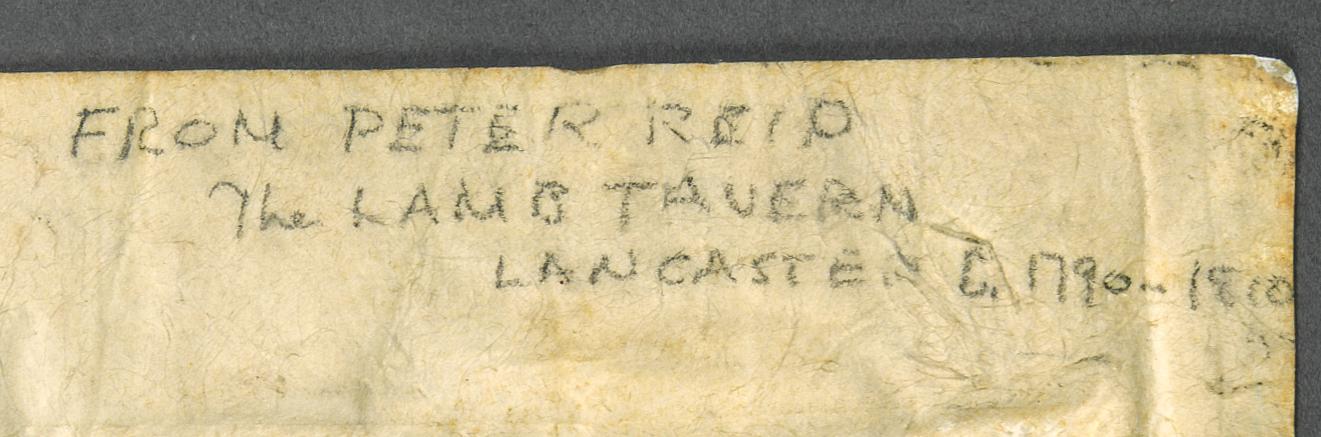 FROM PETER REID
The LAMB TAVERN
LANCASTER C. 1790-1810